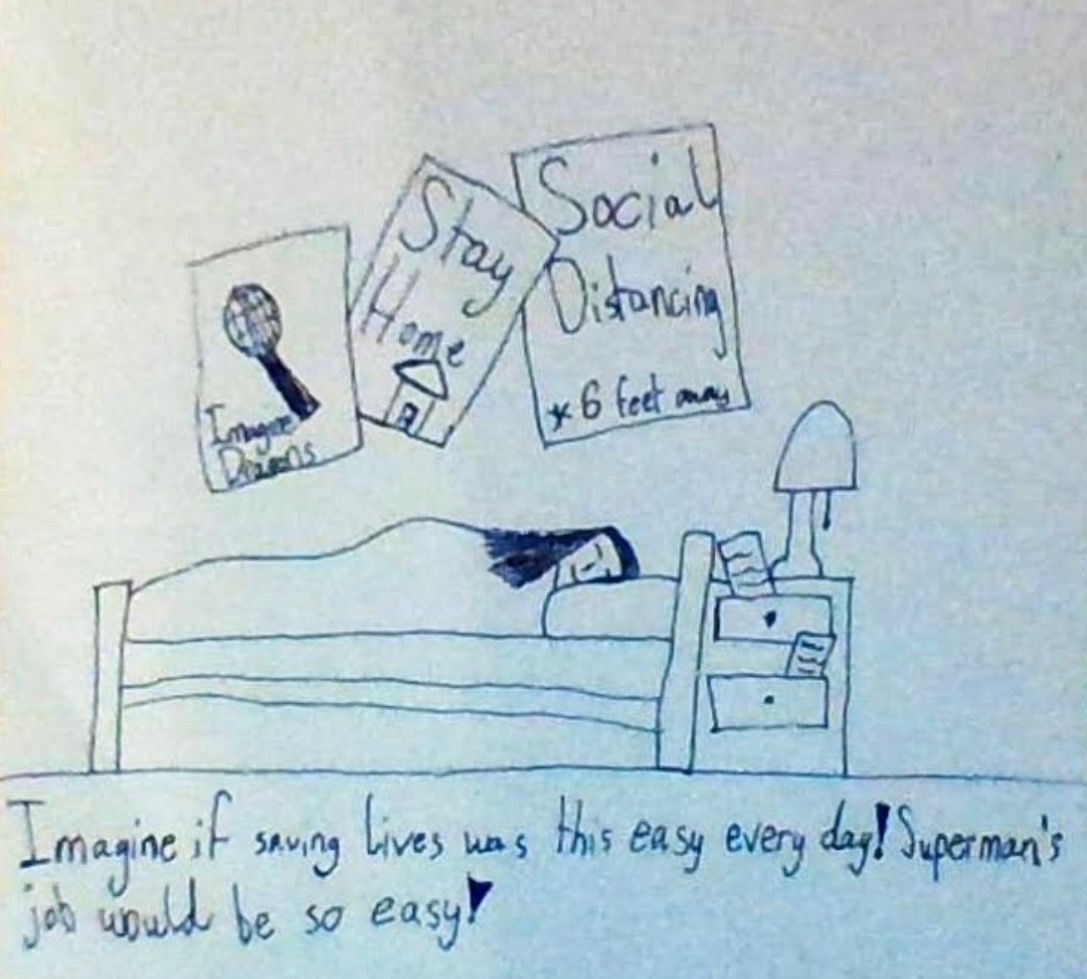 Imagine
Dragons
Stay
Home
Social
Distancing
* 6 feet away
Imagine if saving lives was this easy every day! Superman's
job would be so easy!